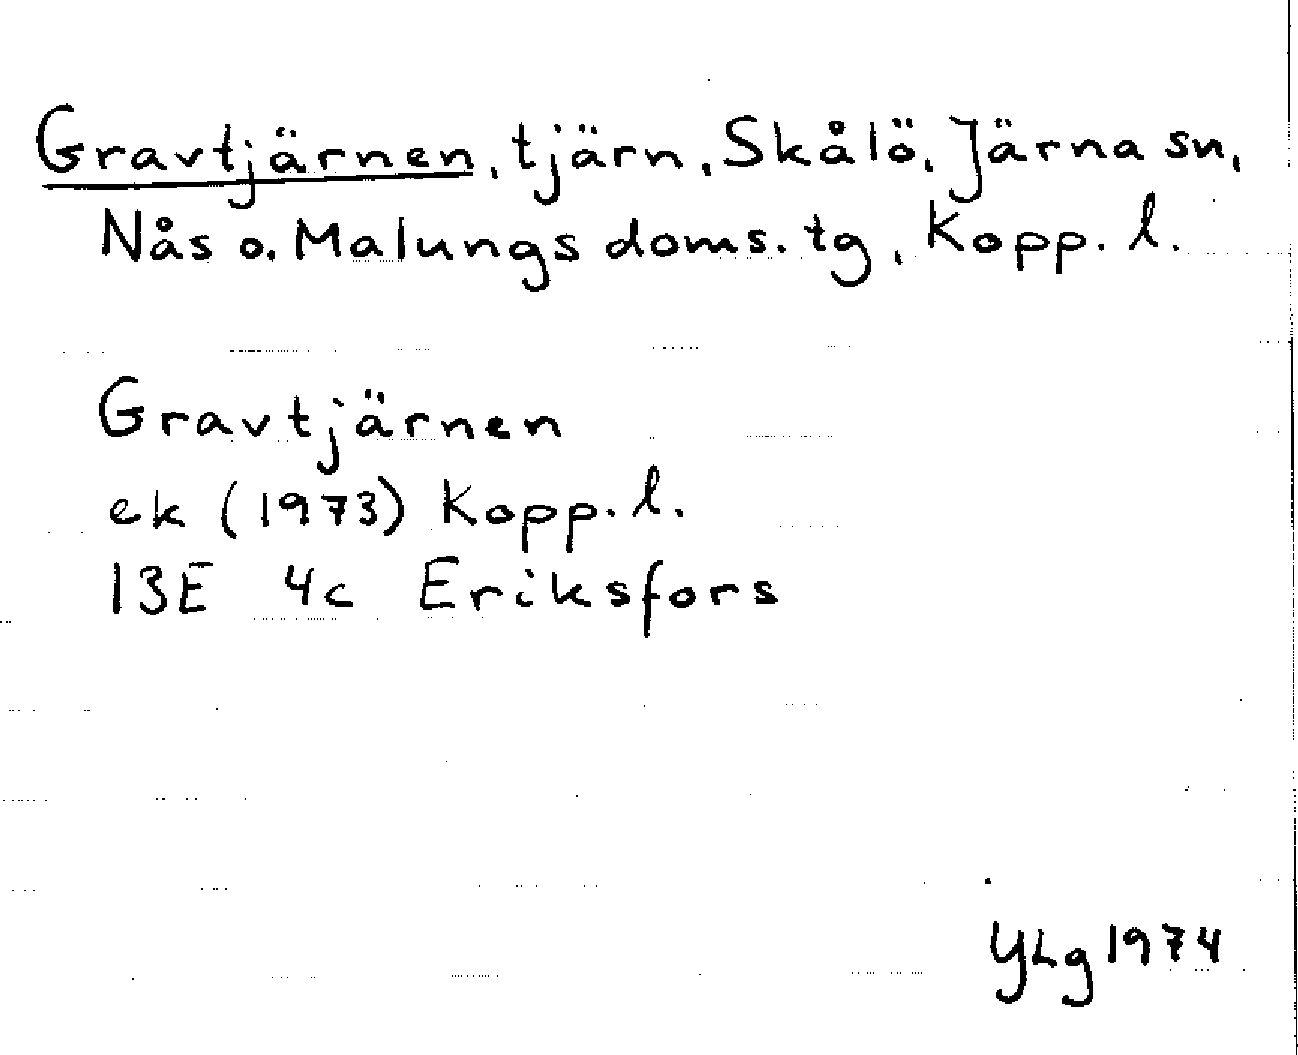 Gravtjärnen, tjärn, Skålö, Järna sn,
Nås o. Malungs doms. tg, Kopp. l.
Gravtjärnen
ek (1973) Kopp. l.
13E 4c Eriksfors
YLg 1974